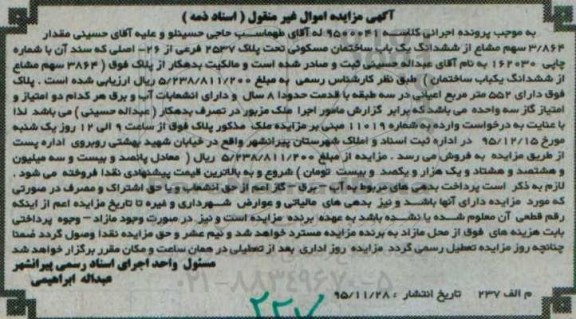 آگهی مزایده اموال غیر منقول ( اسناد ذمه )
به موجب پرونده اجرائی کلاسه ۹۵۰۰۰۴۱ له آقای طهماسب حاجی حسینلو و علیه آقای حسینی مقدار
۳/۸۶۴ سهم مشاع از ششدانگ یک باب ساختمان مسکونی تحت پلاک ۲۵۳۷ فرعی از ۲۶- اصلی که سند آن با شماره
چاپی ۱۶۲۰۳۰ به نام آقای عبداله حسینی ثبت و صادر شده است و مالکیت بدهکار از پلاک فوق ( ۳۸۶۴ سهم مشاع
از ششدانگ یکباب ساختمان ) طبق نظر کارشناس رسمی به مبلغ ۵/۲۳۸/۸۱۱/۲۰۰ ریال ارزیابی شده است . پلاک
فوق دارای ۵۵۲ متر مربع اعیانی در سه طبقه با قدمت حدودا ۸ سال و دارای انشعابات آب و برق هر کدام دو امتیاز و
امتیاز گاز سه واحد می باشد که برابر گزارش مامور اجرا ملک مزبور در تصرف بدهکار ( عبداله حسینی ) می باشد لذا
با عنایت به درخواست وارده به شماره ۱۱۰۱۹ مبنی بر مزایده ملک مذکور پلاک فوق از ساعت ۹ الی ۱۲ روز یک شنبه
مورخ ۹۵/۱۲/۱۵ در اداره ثبت اسناد و املاک شهرستان پیرانشهر واقع در خیابان شهید بهشتی روبروی اداره پست
از طریق مزایده به فروش می رسد . مزایده از مبلغ ۵/۲۳۸/۸۱۱/۲۰۰ ریال ( معادل پانصد و بیست و سه میلیون
و هشتصد و هشتاد و یک هزار و یکصد و بیست تومان ) شروع و به بالاترین قیمت پیشنهادی نقدا فروخته می شود .
لازم به ذکر است پرداخت بدهی های مربوط به آب - برق - گاز اعم از حق انشعاب و یا حق اشتراک و مصرف در صورتی
که مورد مزایده دارای آنها باشد و نیز بدهی های مالیاتی و عوارض شهرداری و غیره تا تاریخ مزایده اعم از اینکه
رقم قطعی آن معلوم شده یا نشده باشد به عهده برنده مزایده است و نیز در صورت وجود مازاد - وجوه پرداختی
بابت هزینه های فوق از محل مازاد به برنده مزایده مسترد خواهد شد و نیم عشر و حق مزایده نقدا وصول گردد ضمنا
چنانچه روز مزایده تعطیل رسمی گردد مزایده روز اداری بعد از تعطیلی در همان ساعت و مکان مقرر برگزار خواهد شد
مسئول واحد اجرای اسناد رسمی پیرانشهر
عبداله ابراهیمی
م الف ۲۳۷ تاریخ انتشار : ۹۵/۱۱/۲۸
۰۲۱-۸۸۳۴۹۶۷۰-۵
۲۲۷